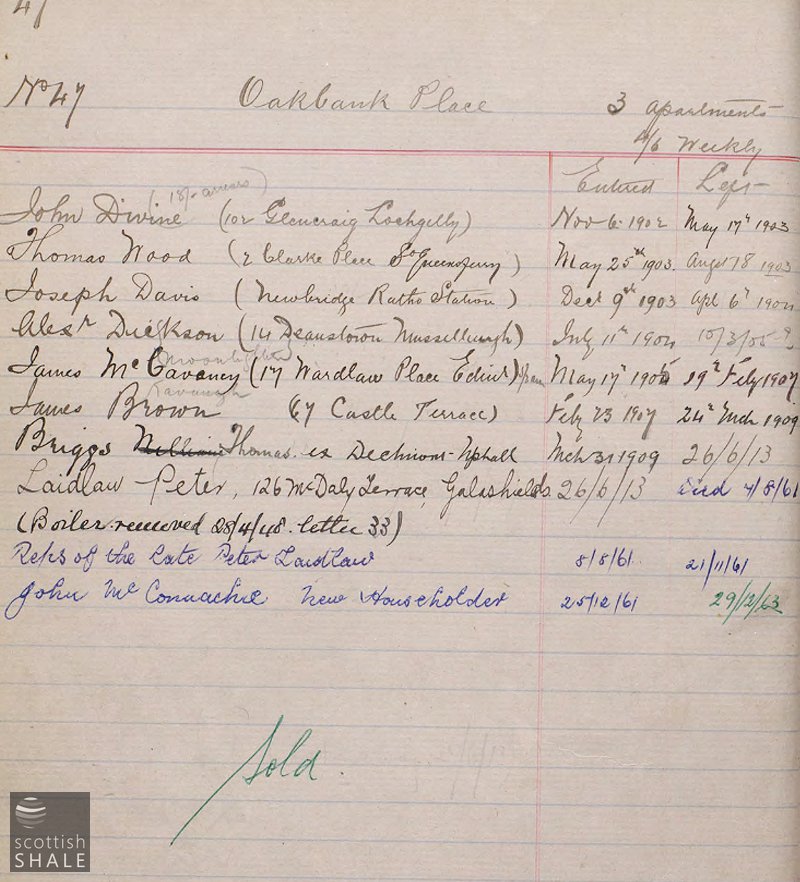 47
No 47 Oakbank Place 3 apartments
4/6 Weekly
Entered Left
(18/- arrears)
John Divine (102 Glencraig Lochgelly) Nov 6 1902 May 17th 1903
Thomas Wood (2 Clarke Place So Queensferry) May 25th 1903. Augst 18 1903
Joseph Davis (Newbridge Ratho Station) Decr 9th 1903 Apl 6th 1904
Alexr Dickson (14 Deanstown Musselburgh) July 11th 1904 10/3/05
(moonlighter)
James McCavaney (17 Wardlaw Place Edinr) May 17th 1905 19th Feby 1907
Kavanagh
James Brown (67 Castle Terrace) Feby 23 1907 24th Mch 1909
Briggs William Thomas ex Dechmont Uphall Mch 31 1909 26/6/13
Laidlaw Peter, 126 McDaly Terrace, Galashields 26/6/13 Died 7/8/61
(Boiler removed 28/4/48. letter 33)
Reps of the late Peter Laidlaw 8/8/61. 21/11/61
John McConnachie New Householder 25/12/61 29/12/63
Sold
scottish
SHALE